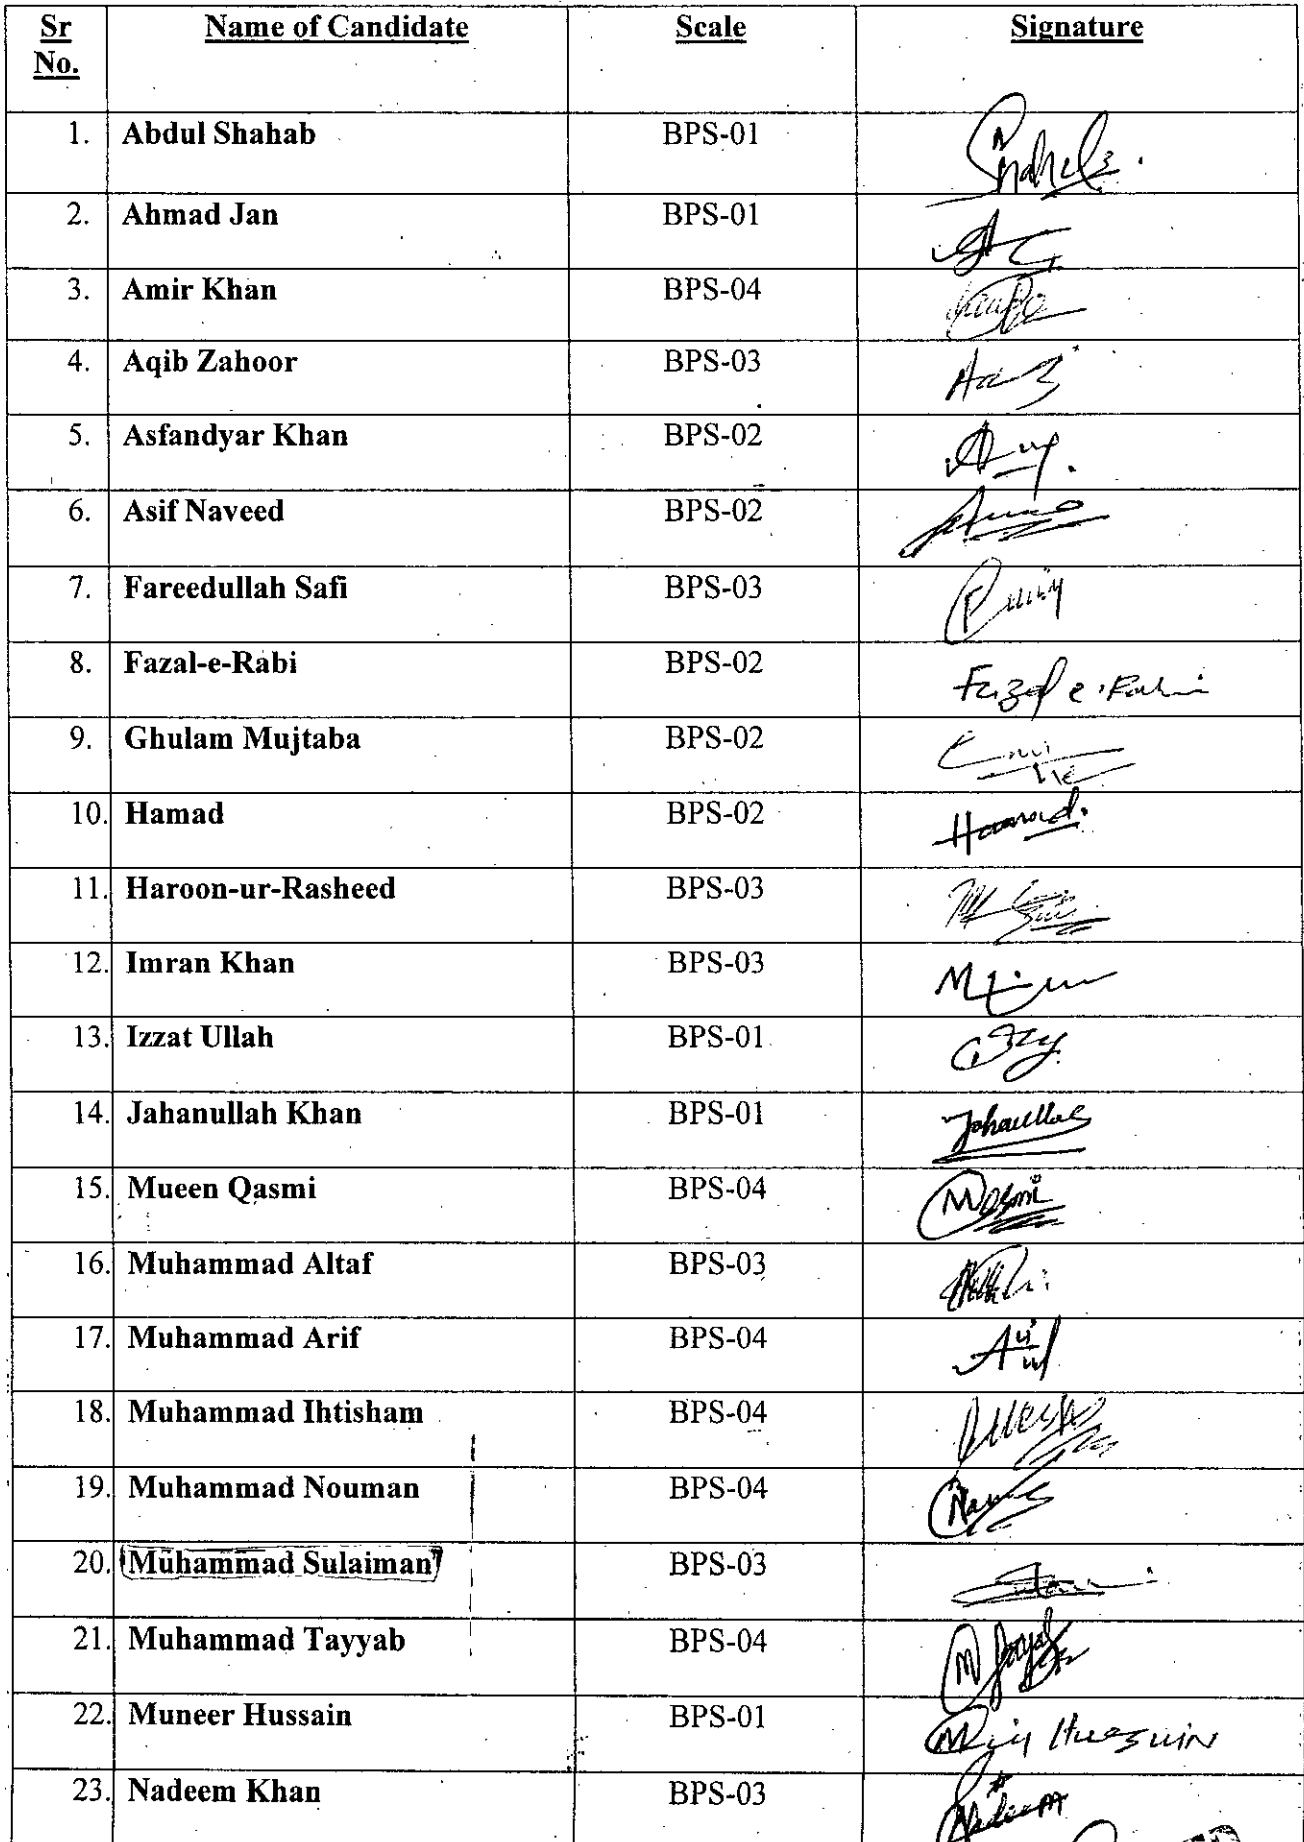 Sr No. Name of Candidate Scale Signature
1. Abdul Shahab BPS-01
2. Ahmad Jan BPS-01
3. Amir Khan BPS-04
4. Aqib Zahoor BPS-03
5. Asfandyar Khan BPS-02
6. Asif Naveed BPS-02
7. Fareedullah Safi BPS-03
8. Fazal-e-Rabi BPS-02
9. Ghulam Mujtaba BPS-02
10. Hamad BPS-02 Hamad.
11. Haroon-ur-Rasheed BPS-03
12. Imran Khan BPS-03
13. Izzat Ullah BPS-01
14. Jahanullah Khan BPS-01
15. Mueen Qasmi BPS-04
16. Muhammad Altaf BPS-03
17. Muhammad Arif BPS-04
18. Muhammad Ihtisham BPS-04
19. Muhammad Nouman BPS-04
20. Muhammad Sulaiman BPS-03
21. Muhammad Tayyab BPS-04
22. Muneer Hussain BPS-01
23. Nadeem Khan BPS-03 Nadeem